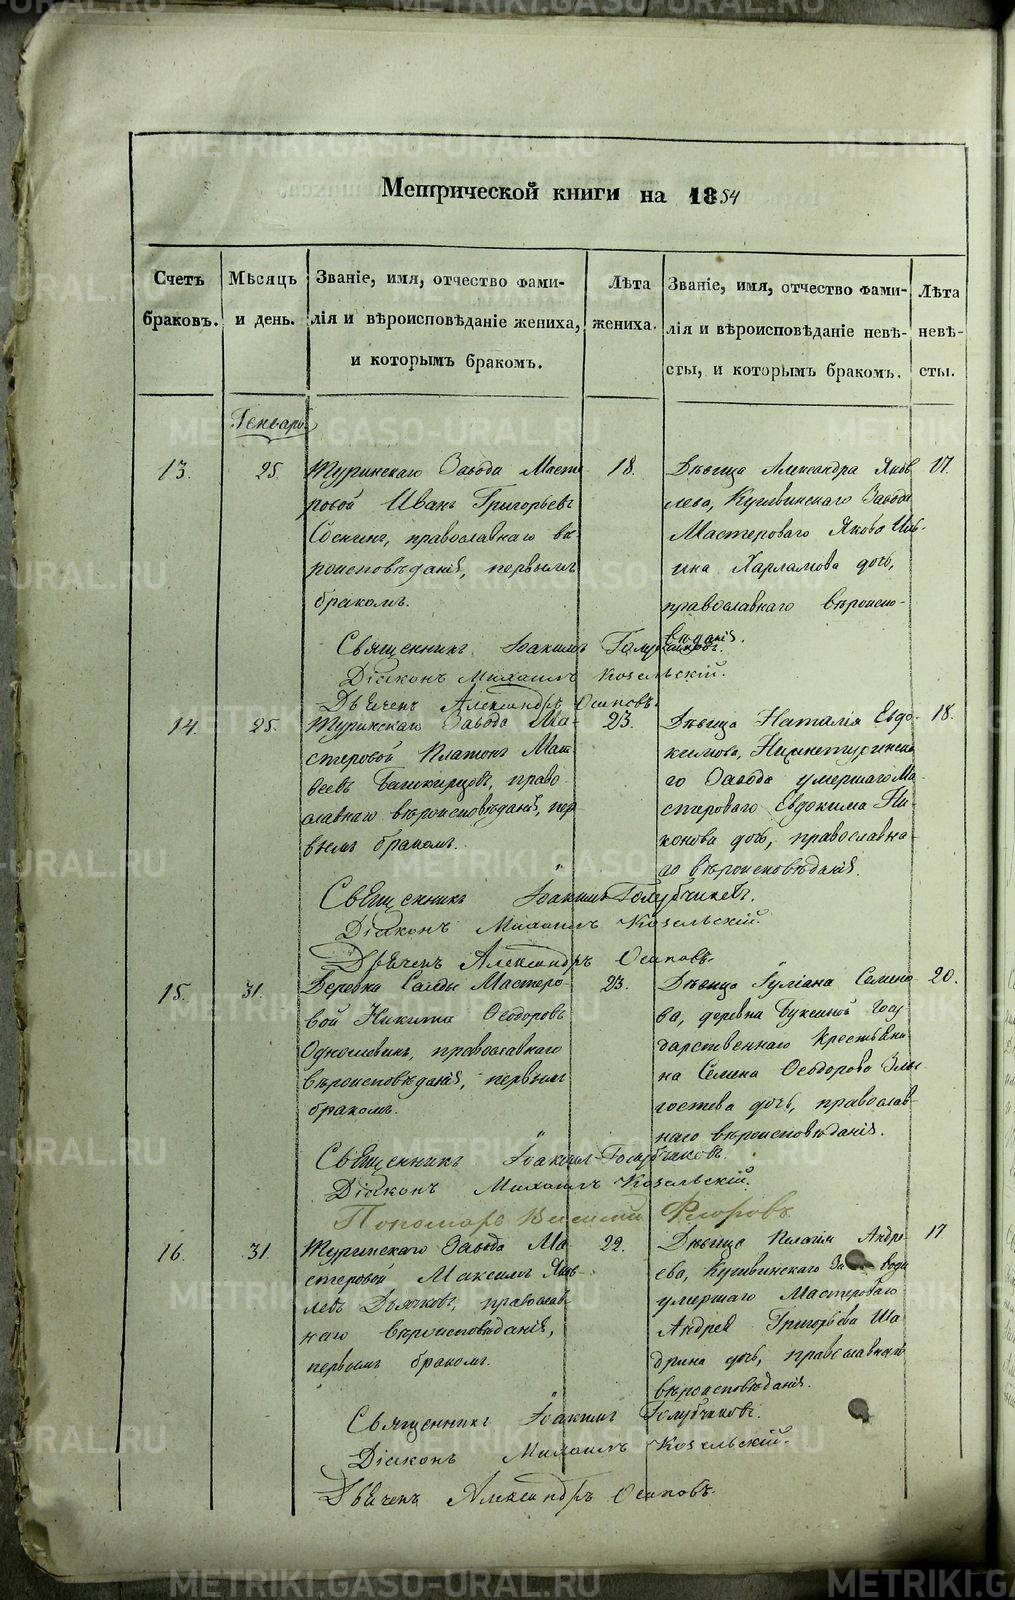 Метрической книги на 1854
Счетъ браковъ.
Мѣсяцъ и день.
Званіе, имя, отчество фами-
лія и вѣроисповѣданіе жениха,
и которымъ бракомъ.
Лѣта жениха.
Званіе, имя, отчество фами-
лія и вѣроисповѣданіе невѣ-
сты, и которымъ бракомъ.
Лѣта невѣ-
сты.
Генваръ
13.
25.
Туринскаго Завода Масте-
ровой Иванъ Григорьевъ
Соснинъ, православнаго вѣ-
роисповѣданія, первымъ
бракомъ.
18.
Дѣвица Александра Яков
лева, Кушвинскаго Завода
Мастероваго Якова
Харламова дочь,
православнаго вѣроиспо-
вѣданія.
17.
Священникъ Іоакимъ Голубчиковъ.
Діаконъ Михаилъ Козельскій.
Дьячекъ Александръ Осиповъ.
14.
25.
Туринскаго Завода Ма-
стеровой Платонъ Мат
веевъ Башкирцовъ, право-
славнаго вѣроисповѣданія, пер
вымъ бракомъ.
23.
Дѣвица Наталія Евдо-
кимова, Нижнетуринска
го Завода умершаго Ма-
стероваго Евдокима Ни-
конова дочь, православна-
го вѣроисповѣданія.
18.
Священникъ Іоакимъ Голубчиковъ.
Діаконъ Михаилъ Козельскій.
Дьячекъ Александръ Осиповъ.
15.
31.
Деревни Салды Мастеро-
вой Никита Ѳеодоровъ
православнаго
вѣроисповѣданія, первымъ
бракомъ.
23.
Дѣвица Іуліана Семено-
ва, деревни Буксиной Госу
дарственнаго Крестьяни
на Семена Ѳеодорова Злы-
гостева дочь, православ-
наго вѣроисповѣданія.
20.
Священникъ Іоакимъ Голубчиковъ.
Діаконъ Михаилъ Козельскій.
Пономарь Ѳеодоровъ
16.
31.
Туринскаго Завода Ма-
стеровой Максимъ Яков
левъ Дьячковъ, православ-
наго вѣроисповѣданія,
первымъ бракомъ.
22.
Дѣвица Пелагія Андре-
ева, Кушвинскаго Завода
умершаго Мастероваго
Андрея Григорьева Ша
дрина дочь, православнаго
вѣроисповѣданія.
17
Священникъ Іоакимъ Голубчиковъ.
Діаконъ Михаилъ Козельскій.
Дьячекъ Александръ Осиповъ.
METRIKI.GASO-URAL.RU